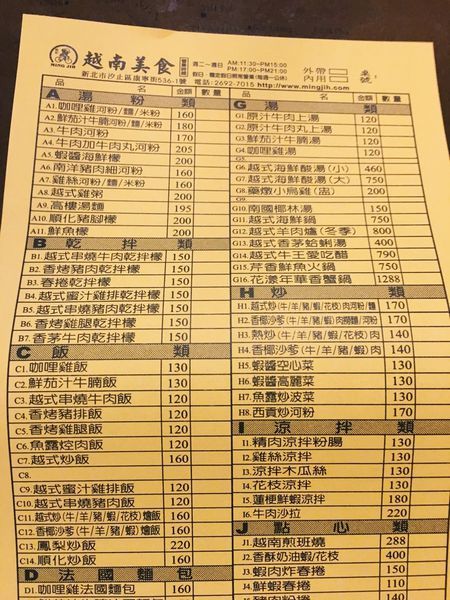 MING JIH
越南美食
週二～週日 AM:11:30~PM15:00
PM:17:00~PM21:00
假日、國定假日照常營業(每週一公休)
新北市汐止區康寧街536-1號 電話: 2692-7015 http://www.mingjih.com
外帶 內用 桌號:
品 名 金額 數量
A 湯 粉 類
A1.咖哩雞河粉/麵/米粉 160
A2.鮮茄汁牛腩河粉/麵/米粉 180
A3.牛肉河粉 170
A4.牛肉加牛肉丸河粉 205
A5.蝦醬海鮮檬 200
A6.南洋豬肉細河粉 160
A7.雞絲河粉/麵/米粉 160
A8.越式雞粥 200
A9.高樓湯麵 195
A10.順化豬腳檬 200
A11.鮮魚檬 200
B 乾 拌 類
B1.越式串燒牛肉乾拌檬 150
B2.香烤豬肉乾拌檬 150
B3.春捲乾拌檬 150
B4.越式蜜汁雞排乾拌檬 150
B5.越式串燒豬肉乾拌檬 150
B6.香烤雞腿乾拌檬 150
B7.香茅牛肉乾拌檬 150
C 飯 類
C1.咖哩雞飯 130
C2.鮮茄汁牛腩飯 130
C3.越式串燒牛肉飯 120
C4.香烤豬排飯 120
C5.香烤雞腿飯 120
C6.魚露焢肉飯 120
C7.越式炒飯 160
C8.
C9.越式蜜汁雞排飯 120
C10.越式串燒豬肉飯 120
C11.越式炒(牛/羊/豬/蝦/花枝)燴飯 160
C12.香椰沙爹(牛/羊/豬/蝦)燴飯 160
C13.鳳梨炒飯 220
C14.順化炒飯 160
D 法 國 麵 包
D1.咖哩雞法國麵包 160
品 名 金額 數量
G 湯 類
G1.原汁牛肉上湯 120
G2.原汁牛肉丸上湯 120
G3.鮮茄汁牛腩湯 120
G4.咖哩雞湯 120
G5.
G6.越式海鮮酸湯(小) 460
G7.越式海鮮酸湯(大) 750
G8.藥燉小烏雞(盅) 200
G9.
G10.南國椰林湯 200
G11.越式海鮮鍋 750
G12.越式羊肉爐(冬季) 800
G13.越式香茅蛤蜊湯 400
G14.越式牛王愛吃醋 790
G15.芹香鮮魚火鍋 750
G16.花漾年華香蟹鍋 1288
H 炒 類
H1.越式炒(牛/羊/豬/蝦/花枝)肉河粉/麵 170
H2.香椰沙爹(牛/羊/豬/蝦)肉撈麵/河粉 170
H3.熱炒(牛/羊/豬/蝦/花枝)肉 140
H4.香椰沙爹(牛/羊/豬/蝦)肉 140
H5.蝦醬空心菜 130
H6.蝦醬高麗菜 130
H7.魚露炒菠菜 130
H8.西貢炒河粉 170
I 涼 拌 類
I1.精肉涼拌粉腸 130
I2.雞絲涼拌 130
I3.涼拌木瓜絲 130
I4.花枝涼拌 130
I5.蓮梗鮮蝦涼拌 180
I6.牛肉沙拉 220
J 點 心 類
J1.越南煎班燒 288
J2.香酥奶油蝦/花枝 400
J3.蝦肉炸春捲 150
J4.鮮蝦春捲 140